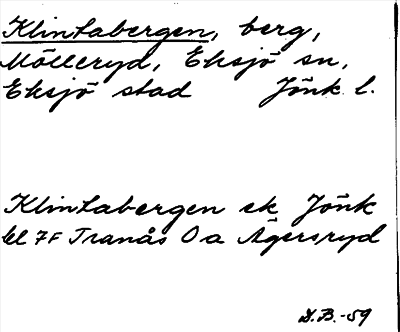 Klintabergen, berg,
Mölleryd, Eksjö sn,
Eksjö stad Jönk. l.
Klintabergen ek Jönk
bl 7F Tranås Öa Ägersryd
D.B.-59